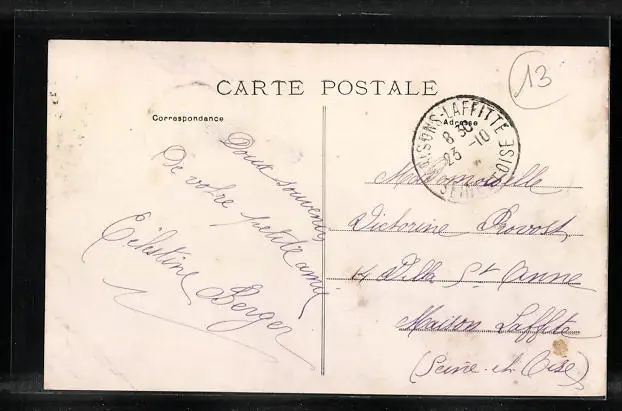 13
CARTE POSTALE
Correspondance
Adresse
MAISONS-LAFFITTE
8 30
23 -10
SEINE-ET-OISE
Doux souvenir
De votre petite amie
Célestine Berger
Mademoiselle
Victorine Provost
14 Villa St Anne
Maison Laffite
(Seine et Oise)